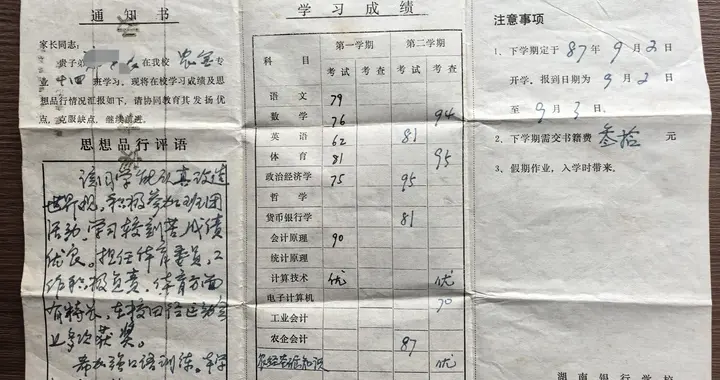 通知书
家长同志：
贵子弟 在我校农金专
业十四班学习。现将在校学习成绩及思
想品行情况汇报如下，请协同教育其发扬优
点，克服缺点，继续前进。
思想品行评语
该同学能认真改造
世界观，积极参加班团
活动，学习较刻苦，成绩
优良。担任体育委员，工
作积极负责，体育方面
有特长，在校田径运动会
上多次获奖。
希加强口语训练。
学习成绩
科目 第一学期 第二学期
考试 考查 考试 考查
语文 79
数学 76 94
英语 62 81
体育 81 95
政治经济学 75 95
哲学
货币银行学 81
会计原理 90
统计原理
计算技术 优 优
电子计算机 70
工业会计
农企会计 87
农经基础知识 优
注意事项
1、下学期定于87年9月2日
开学。报到日期为9月2日
至9月3日。
2、下学期需交书籍费叁拾元
3、假期作业，入学时带来。
湖南银行学校